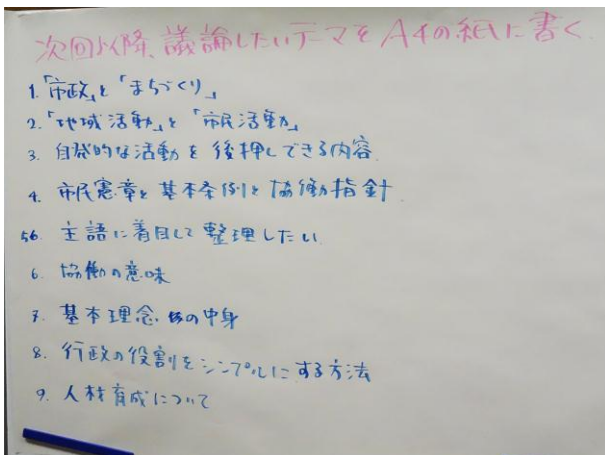 次回以降、議論したいテーマをA4の紙に書く
1.「市政」と「まちづくり」
2.「地域活動」と「市民活動」
3. 自発的な活動を後押しできる内容
4. 市民憲章と基本条例と協働指針
56. 主語に着目して整理したい
6. 協働の意味
7. 基本理念 の中身
8. 行政の役割をシンプルにする方法
9. 人材育成について